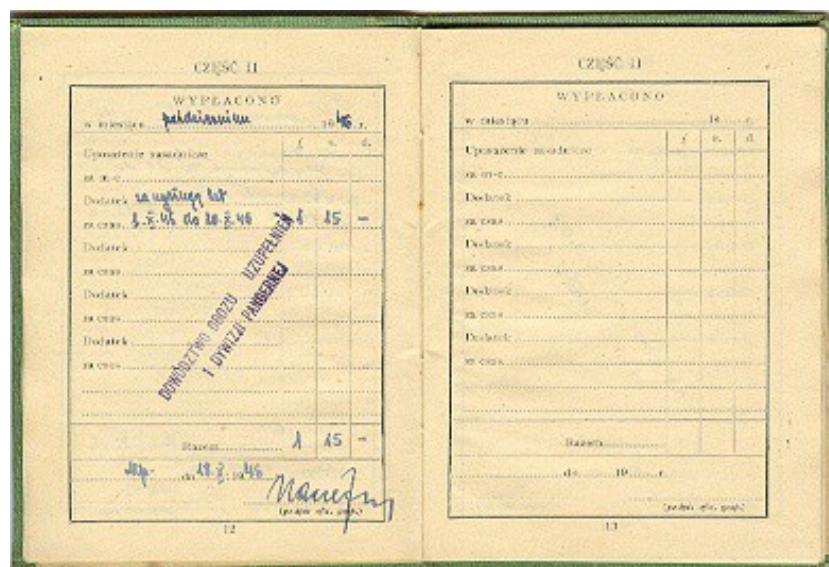 CZĘŚĆ II
WYPŁACONO
w miesiącu październiku 1946 r.
£ s. d.
Uposażenie zasadnicze
za m-c
Dodatek za wysługę lat
za czas 1.X.46 do 20.X.46 1 15 -
Dodatek
za czas
Dodatek
za czas
Dodatek
za czas
DOWÓDZTWO OBOZU UZUPEŁNIEŃ
1 DYWIZJI PANCERNEJ
Razem 1 15 -
Mp. dn 18.X.1946
(podpis ofic. gosp.)
12
CZĘŚĆ II
WYPŁACONO
w miesiącu 19 r.
£ s. d.
Uposażenie zasadnicze
za m-c
Dodatek
za czas
Dodatek
za czas
Dodatek
za czas
Dodatek
za czas
Razem
dn. 19 r.
(podpis ofic. gosp.)
13